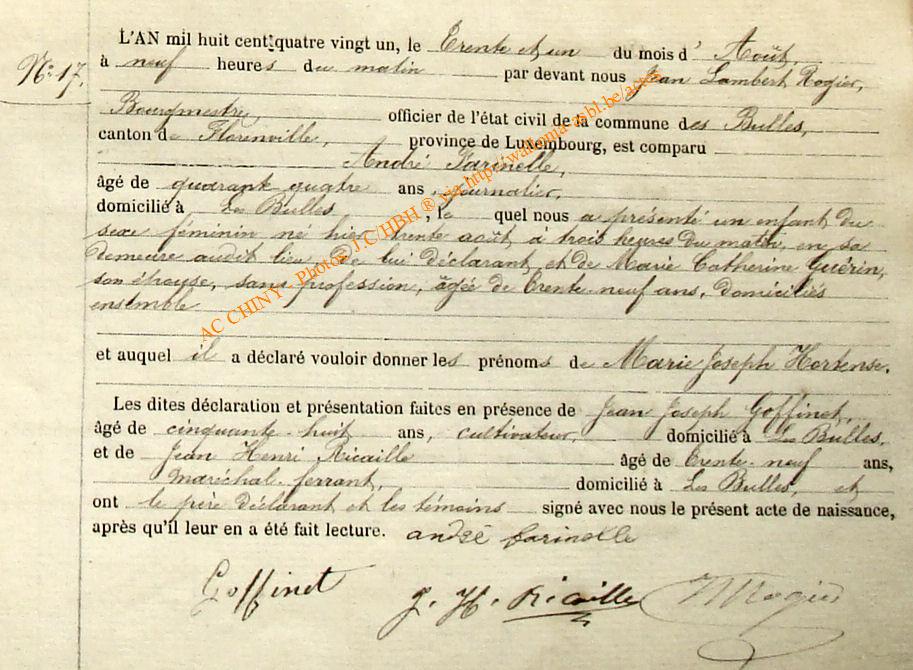 L'AN mil huit cent quatre vingt un, le Trente et un du mois d' Août,
N° 17.
à neuf heures du matin par devant nous Jean Lambert Rogier,
Bourgmestre officier de l'état civil de la commune des Bulles,
canton de Florenville, province de Luxembourg, est comparu
André Farinelle,
âgé de quarante quatre ans, journalier,
domicilié à Les Bulles, le quel nous a présenté un enfant du
sexe féminin né hier trente août à trois heures du matin, en sa
demeure audit lieu, de lui déclarant et de Marie Catherine Guérin,
son épouse, sans profession, âgée de trente-neuf ans, domiciliés
ensemble
et auquel il a déclaré vouloir donner les prénoms de Marie Joseph Hortense.
Les dites déclaration et présentation faites en présence de Jean Joseph Goffinet,
âgé de cinquante-huit ans, cultivateur, domicilié à Les Bulles,
et de Jean Henri Ricaille âgé de trente-neuf ans,
maréchal-ferrant, domicilié à Les Bulles, et
ont le père déclarant et les témoins signé avec nous le présent acte de naissance,
après qu'il leur en a été fait lecture. andré farinelle
Goffinet J. H. Ricaille Rogier
AC CHINY - Photos J.C/HBH ® via http://wallonia-asbl.be/actes